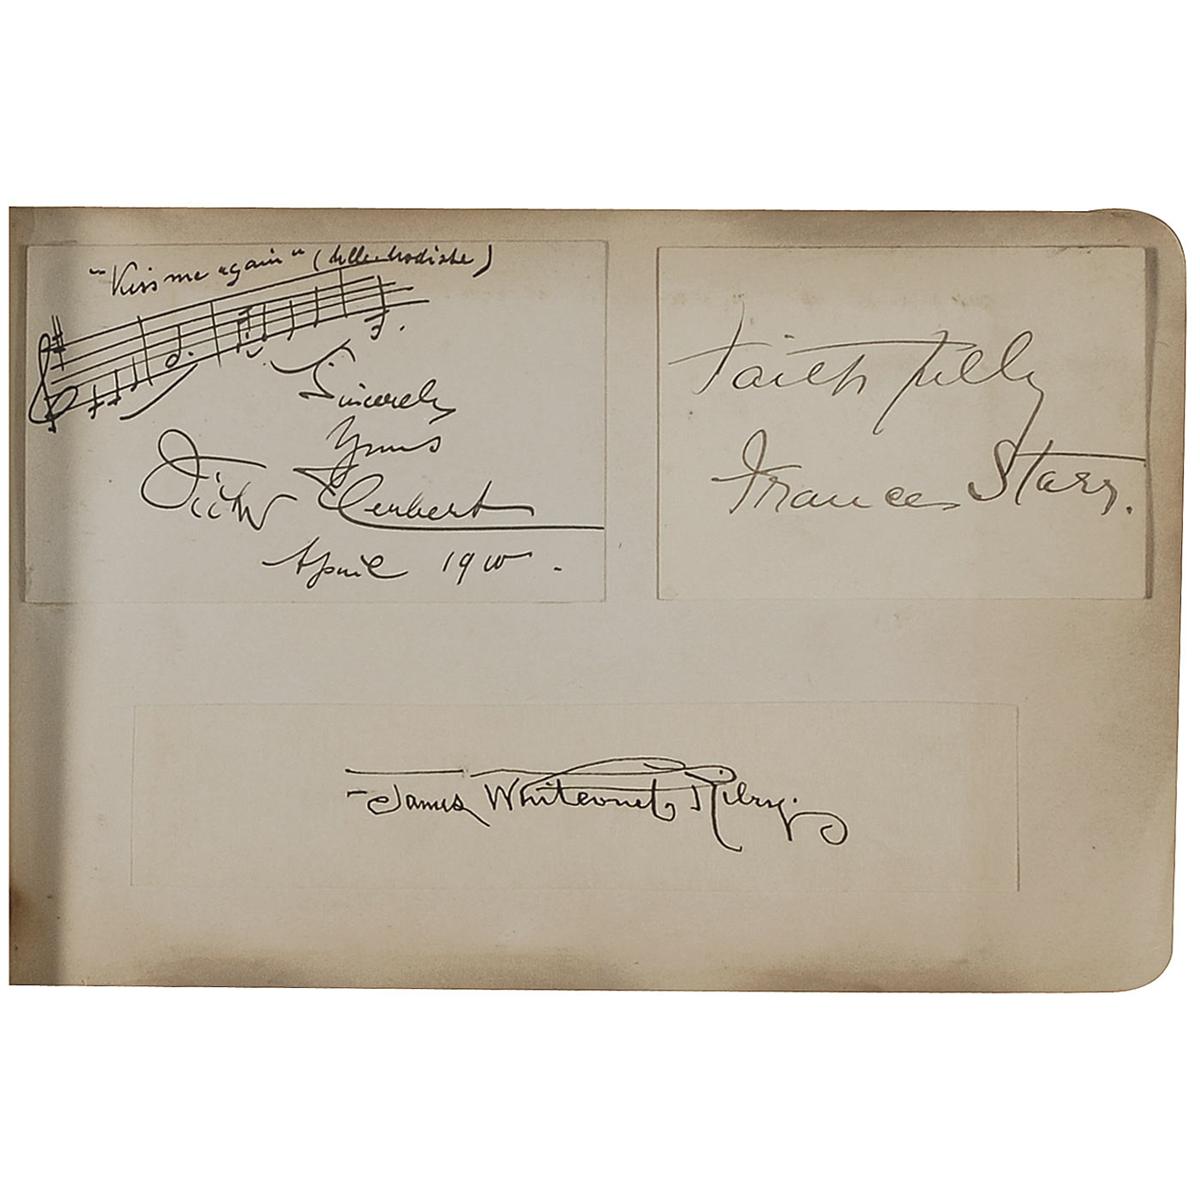 "Kiss me again" (Mlle. Modiste)
Sincerely
Yours
Victor Herbert
April 1910.
Faithfully
Frances Starr.
James Whitcomb Riley.